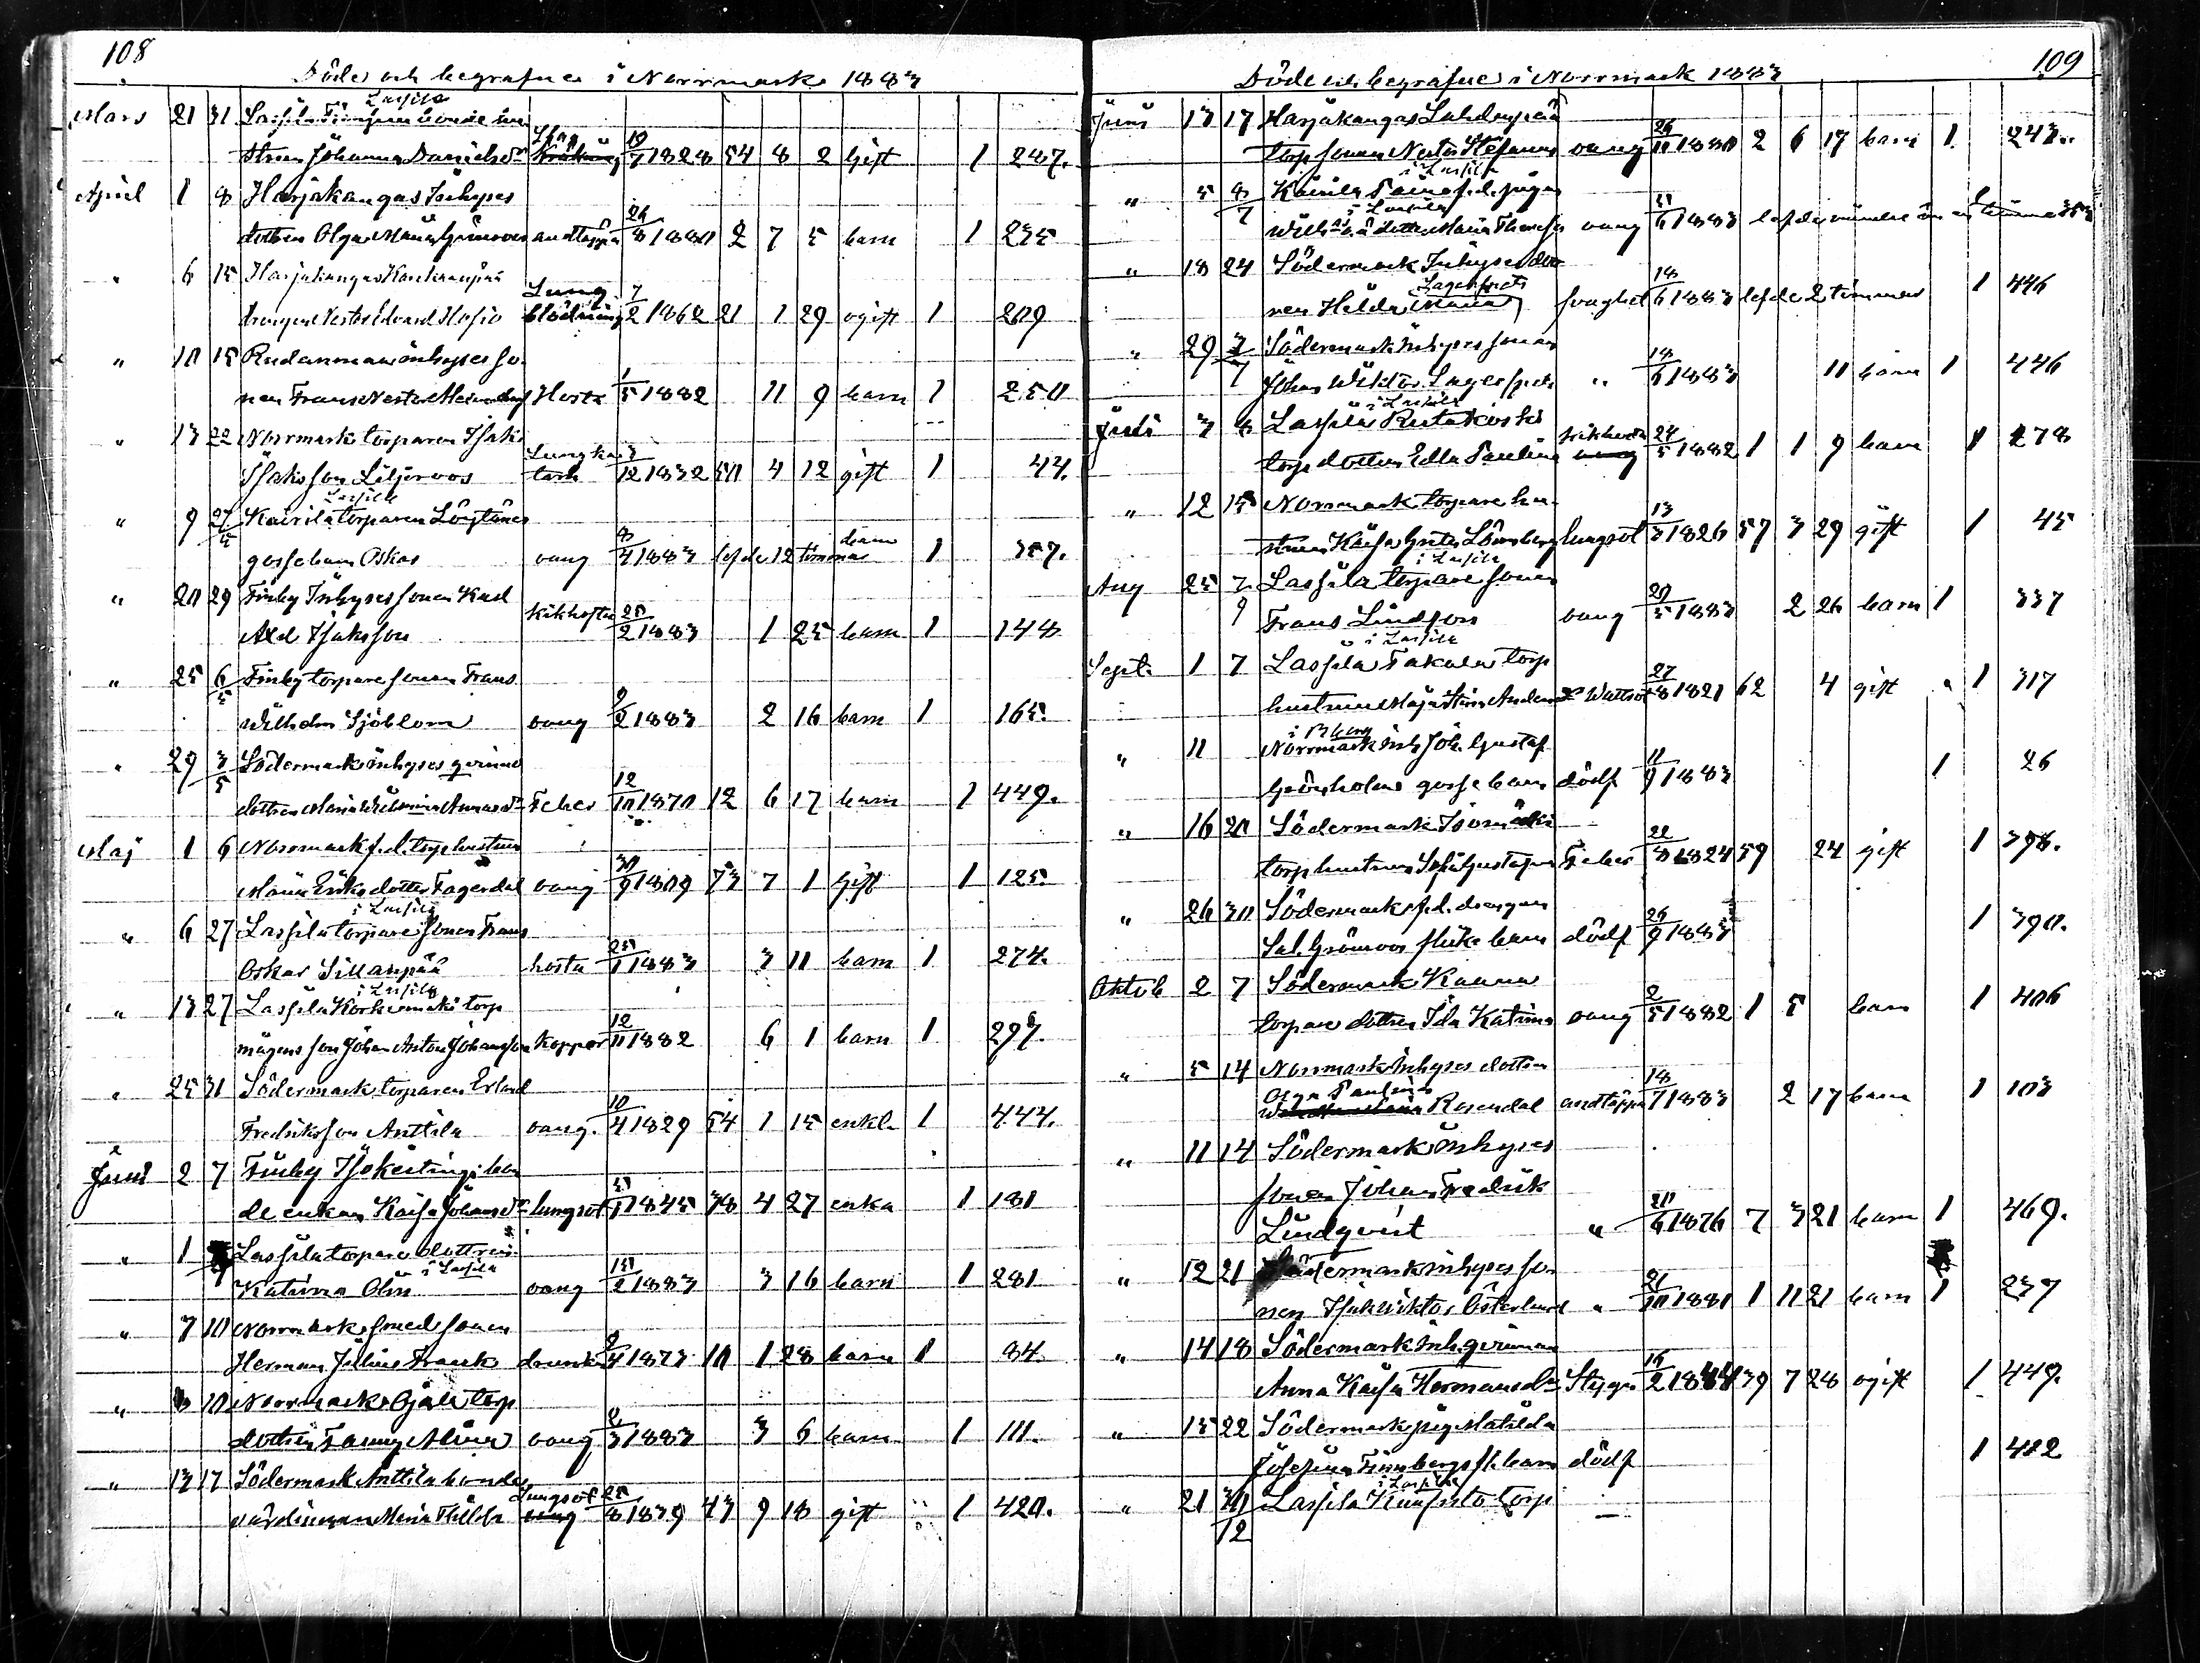 108
Döde och begrafne i Norrmark 1883
Mars 21 31 Lassila bonde hu
Lassila
strun Johanna Danielsdr 10/7 1828 54 8 2 Gift 1 287.
April 1 8 Harjakangas Inhyses
dottren Olga Maria Grönroos andtäppa 26/8 1880 2 7 5 barn 1 235
" 6 15 Harjakangas
drengen Nestor Edvard Lung blödning 7/2 1862 21 1 29 ogift 1 209
" 10 15 Rudanmaa inhyses so
nen Frans Nestor Hosta 1/5 1882 11 9 barn 1 250
" 13 22 Norrmark torparen Isak
Isaksson Liljeroos Lungka tarh 3/12 1832 50 4 12 gift 1 44.
" 9 27/5 Kairila torparen Löytänes
Lassila
gossebarn Oskar oang 8/4 1883 lefde 12 timmar barn 1 357.
" 20 29 Finby Inhyses sonen Karl
Axel Isaksson kikhosta 25/2 1883 1 25 barn 1 148
" 25 6/5 Finby torpare sonen Frans
Wilhelm Sjöblom oang 9/2 1883 2 16 barn 1 165.
" 29 3/5 Södermark inhyses qvinno
dottren Maria Wilhelmina Annasdr Feber 12/10 1870 12 6 17 barn 1 449.
Maj 1 6 Norrmark f.d. torp hustrun
Maria Eriksdotter Fagerdal oang 30/9 1809 73 7 1 Gift 1 125.
" 6 27 Lassila torpare sonen Frans
i Lassila
Oskar Sillanpää hosta 25/1 1883 3 11 barn 1 274.
" 13 27 Lassila Korkiamäki torp
i Lassila
mågens son Johan Anton Johansson koppor 12/11 1882 6 1 barn 1 297.
" 25 31 Södermark torparen Erland
Fredriksson Anttila oang. 10/4 1829 54 1 15 enkl. 1 444.
Juni 2 7 Finby bon
de enkan Kaisa Johansdr lungsot 5/1 1845 38 4 27 enka 1 181
" 1 Lassila torpare dottren
i Lassila
Katrina Olin oang 15/2 1883 3 16 barn 1 281
" 7 10 Norrmark smedssonen
Herman Julius Frank drunk 9/4 1873 10 1 28 barn 1 34.
" 8 10 Norrmark Ojala torp
dottren Fanny Alina oang 2/3 1883 3 6 barn 1 111.
" 13 17 Södermark Anttila bonde
värdinnan Maria Lungsot 25/8 1839 43 9 18 gift 1 420.
109
Döde och begrafne i Norrmark 1883
Juni 13 17 Harjakangas Lahdenpää
torp sonen Nestor Stefanus oang 26/11 1880 2 6 17 barn 1 243.
" 5 8/7 Kairila f.d. pigan
i Lassila
dotter Maria Theresia oang 5/6 1883 lefde mindre än en timme 353
" 18 24 Södermark Inhyses dot
nen Hilda Maria Lagerstedt svaghet 18/6 1883 lefde 2 timmar 1 446
" 29 3/7 Södermark inhyses sonen
Johan Wiktor Lagerstedt " 18/6 1883 11 barn 1 446
Juli 3 8 Lassila Rutakoski
i Lassila
torp dottren Edla Paulina kikhosta 24/5 1882 1 1 9 barn 1 278
" 12 15 Norrmark torpare hu
strun Kaisa Greta Lönnberg lungsot 13/3 1826 57 3 29 gift 1 45
Aug 25 2/9 Lassila torpare sonen
i Lassila
Frans Lindfors oang 29/5 1883 2 26 barn 1 337
Sept. 1 7 Lassila Takala torp
i Lassila
hustrun Maja Stina Andersdr Wattsot 27/8 1821 62 4 gift 1 317
" 11 Norrmark inh Joh. Gustaf
Grönholms gosse barn dödf 11/9 1883 1 26
" 16 20 Södermark Isomäki
torp hustrun Sofia Gustafsdr Feber 22/8 1824 59 24 gift 1 396.
" 26 30 Södermark f.d. drengen
Sal. Grönroos flicke barn dödf 26/9 1883 1 390.
Oktob 2 7 Södermark Kauna
torpare dottren Ida Katrina oang 2/5 1882 1 5 barn 1 406
" 5 14 Norrmark Inhyses dottren
Olga Paulina Rosendal andtäppa 18/7 1883 2 17 barn 1 103
" 11 14 Södermark Inhyses
sonen Johan Fredrik
Lindqvist " 20/6 1876 7 3 21 barn 1 469.
" 12 21 Södermark inhyses so
nen Isak Wiktor Österlund " 21/10 1881 1 11 21 barn 1 237
" 14 18 Södermark Inh. qvinnan
Anna Kaisa Hermansdr Slag 16/2 1844 39 7 28 ogift 1 449.
" 15 22 Södermark pig. Matilda
Josefina Finnbergs fl. barn dödf 1 422
" 21 30/12 Lassila torp
i Lassila